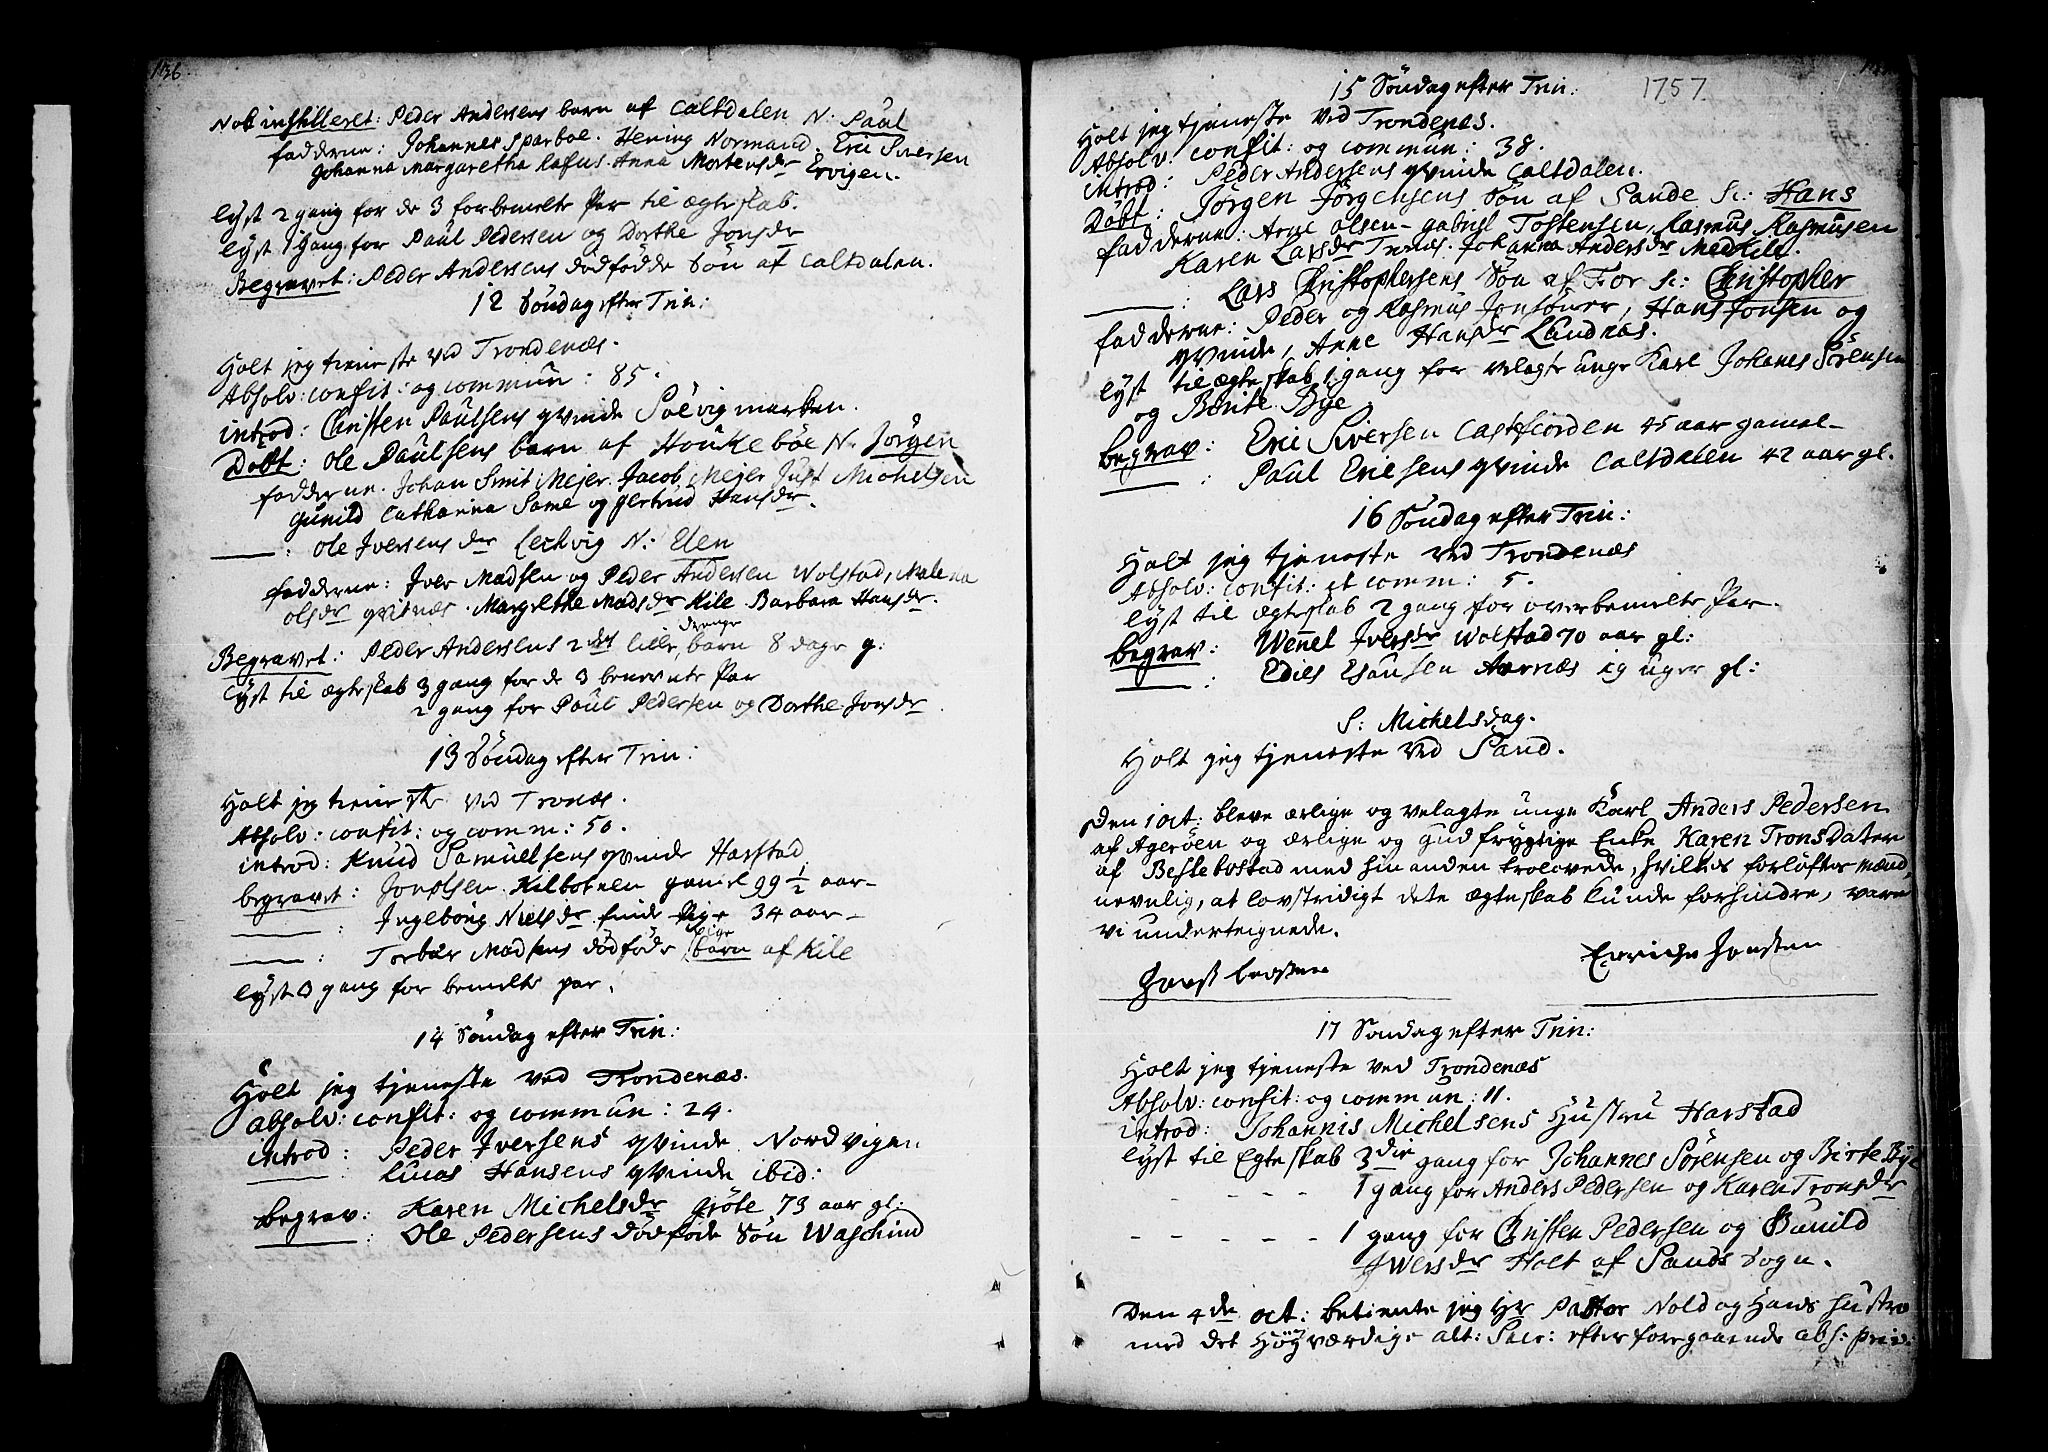 136
Nok inhilleret: Peder Andersens barn af Caltdalen N: Paul
fadderne: Johannes Sparboe. Hening Normand. Eric Siversen
Johanna Margaretha Rafus. Anna Mortensdr Ervigen.
lyst 2 gang for de 3 forbemelte Par til ægteskab.
lyst 1 gang for Paul Pedersen og Dorthe Jonsdr
Begravet: Peder Andersens dödfödde Sön af Caltdalen.
12 Söndag efter Trin:
Holt jeg tieneste ved Trondenæs.
Absolv: confit: og commun: 85.
introd: Christen Paulsens qvinde Solvig marken.
Döbt: Ole Paulsens barn af Houkeböe N. Jörgen
fadderne. Johan Smit Mejer. Jacob Mejer Just Michelsen
Gunild Catharina Same og Gertrud Hansdr.
: Ole Iversens dr Lechvig N: Elen
fadderne: Iver Madsen og Peder Andersen Wolstad, Malena
olsdr qvitnæs. Margrethe Madsdr Kile Barbara Hansdr.
Begravet: Peder Andersens 2det lille drenge barn 8 dage g:
lyst til ægteskab 3 gang for de 3 benevnte Par
2 gang for Paul Pedersen og Dorthe Jonsdr
13 Söndag efter Trin:
Holt jeg tieneste ved Tronæs.
Absolv: confit: og comm: 50.
introd: Knud Samuelsens qvinde Harstad
begravet: Jon olsen Kilbotnen gamel 99 1/2 aar
: Ingeborg Nielsdr finde Pige 34 aar
: Torbiör Madsens dödföde pige barn af Kile
lyst 3 gang for bemelte par.
14 Söndag efter Trin:
Holt jeg tjeneste ved Trondenæs.
absolv: confit: og commun: 24.
introd: Peder Iversens qvinde Nordvigen
Lucas Hansens qvinde ibid:
begrav: Karen Michelsdr Gröte 73 aar gl:
: Ole Pedersens dödföde Sön Waschind
15 Söndag efter Trin: 1757
Holt jeg tjeneste ved Trondenæs.
Absolv: confit: og commun: 38.
introd: Peder Andersens qvinde Caltdalen.
Döbt: Jörgen Jörgensens Sön af Sande N: Hans
fadderne: Arne olsen - gabriel Tostensen, Rasmus Rasmusen
Karen Larsdr Trenæs. Johanna Andersdr Medkile.
: Lars Christophersens Sön af For N: Christopher
fadderne: Peder og Rasmus Jonsöner, Hans Jonsen og
qvinde, Anne Hansdr Lundnæs.
lyst til ægteskab 1 gang for velagte unge Karl Johanes Sörensen
og Börite Bye
begrav: Eric Siversen Castfiorden 45 aar gamel
: Paul Ericsens qvinde Caltdalen 42 aar gl.
16 Söndag efter Trin:
Holt jeg tjeneste ved Trondenæs
Absolv: confit: et comm: 5.
lyst til ægteskab 2 gang for overbemelte Par.
begrav: Wennel Iversdr Wolstad 70 aar gl:
: Edies Esausen Aarnæs 19 uger gl:
S: Michelsdag.
Holt jeg tjeneste ved Sand.
Den 1 oct: bleve ærlige og velagte unge Karl Anders Pedersen
af Ageröen og ærlige og gudfrygtige Enke Karen Tronsdater
af Bestebostad med hinanden trolovede, hvilkes forlöftes mænd,
nevnlig, at lovstridigt dete ægteskab kunde forhindre, vare
vi underteignede.
Enriche Jensten
17 Söndag efter Trin:
Holt jeg tjeneste ved Trondenæs
Absolv: confit: og commun: 11.
introd: Johannis Michelsens Hustru Harstad
lyst til Egteskab 3die gang for Johannes Sörensen og Birte Bye
- - - - 1 gang for Anders Pedersen og Karen Tronsdr
- - - - - 1 gang for Christen Pedersen og Gunild
Iwersdr Holt af Sands Sogn.
Den 4de oct: betiente jeg Hr Pastor Nold og Hans Hustro
med det Höyværdige alt: Sacr: efter foregaaende abs: priv: